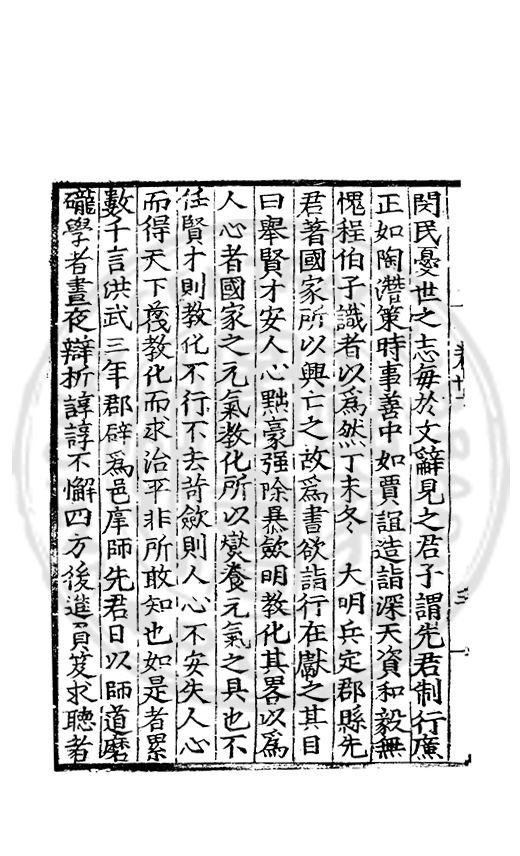 閔民憂世之志每於文辭見之君子謂先君制行廉
正如陶潛策時事善中如賈誼造詣深天資和毅無
愧程伯子識者以為然丁未冬　大明兵定郡縣先
君著國家所以興亡之故為書欲詣行在獻之其目
曰舉賢才安人心黜豪强除暴歛明教化其畧以為
人心者國家之元氣教化所以爕養元氣之具也不
任賢才則教化不行不去苛歛則人心不安失人心
而得天下蔑教化而求治平非所敢知也如是者累
數千言洪武三年郡辟為邑庠師先君日以師道磨
礲學者晝夜辯析諄諄不懈四方後進負笈求聽者